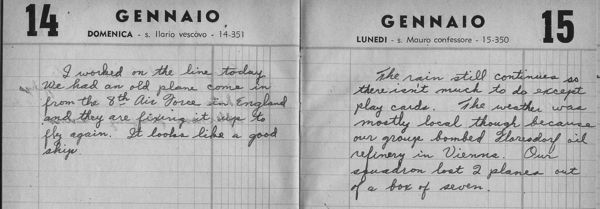 14
GENNAIO
DOMENICA - s. Ilario vescovo - 14-351
I worked on the line today.
We had an old plane come in
from the 8th Air Force in England
and they are fixing it up to
fly again. It looks like a good
ship.
GENNAIO
15
LUNEDI - s. Mauro confessore - 15-350
The rain still continues so
there isn't much to do except
play cards. The weather was
mostly local though because
our group bombed Floresdorf oil
refinery in Vienna. Our
squadron lost 2 planes out
of a box of seven.